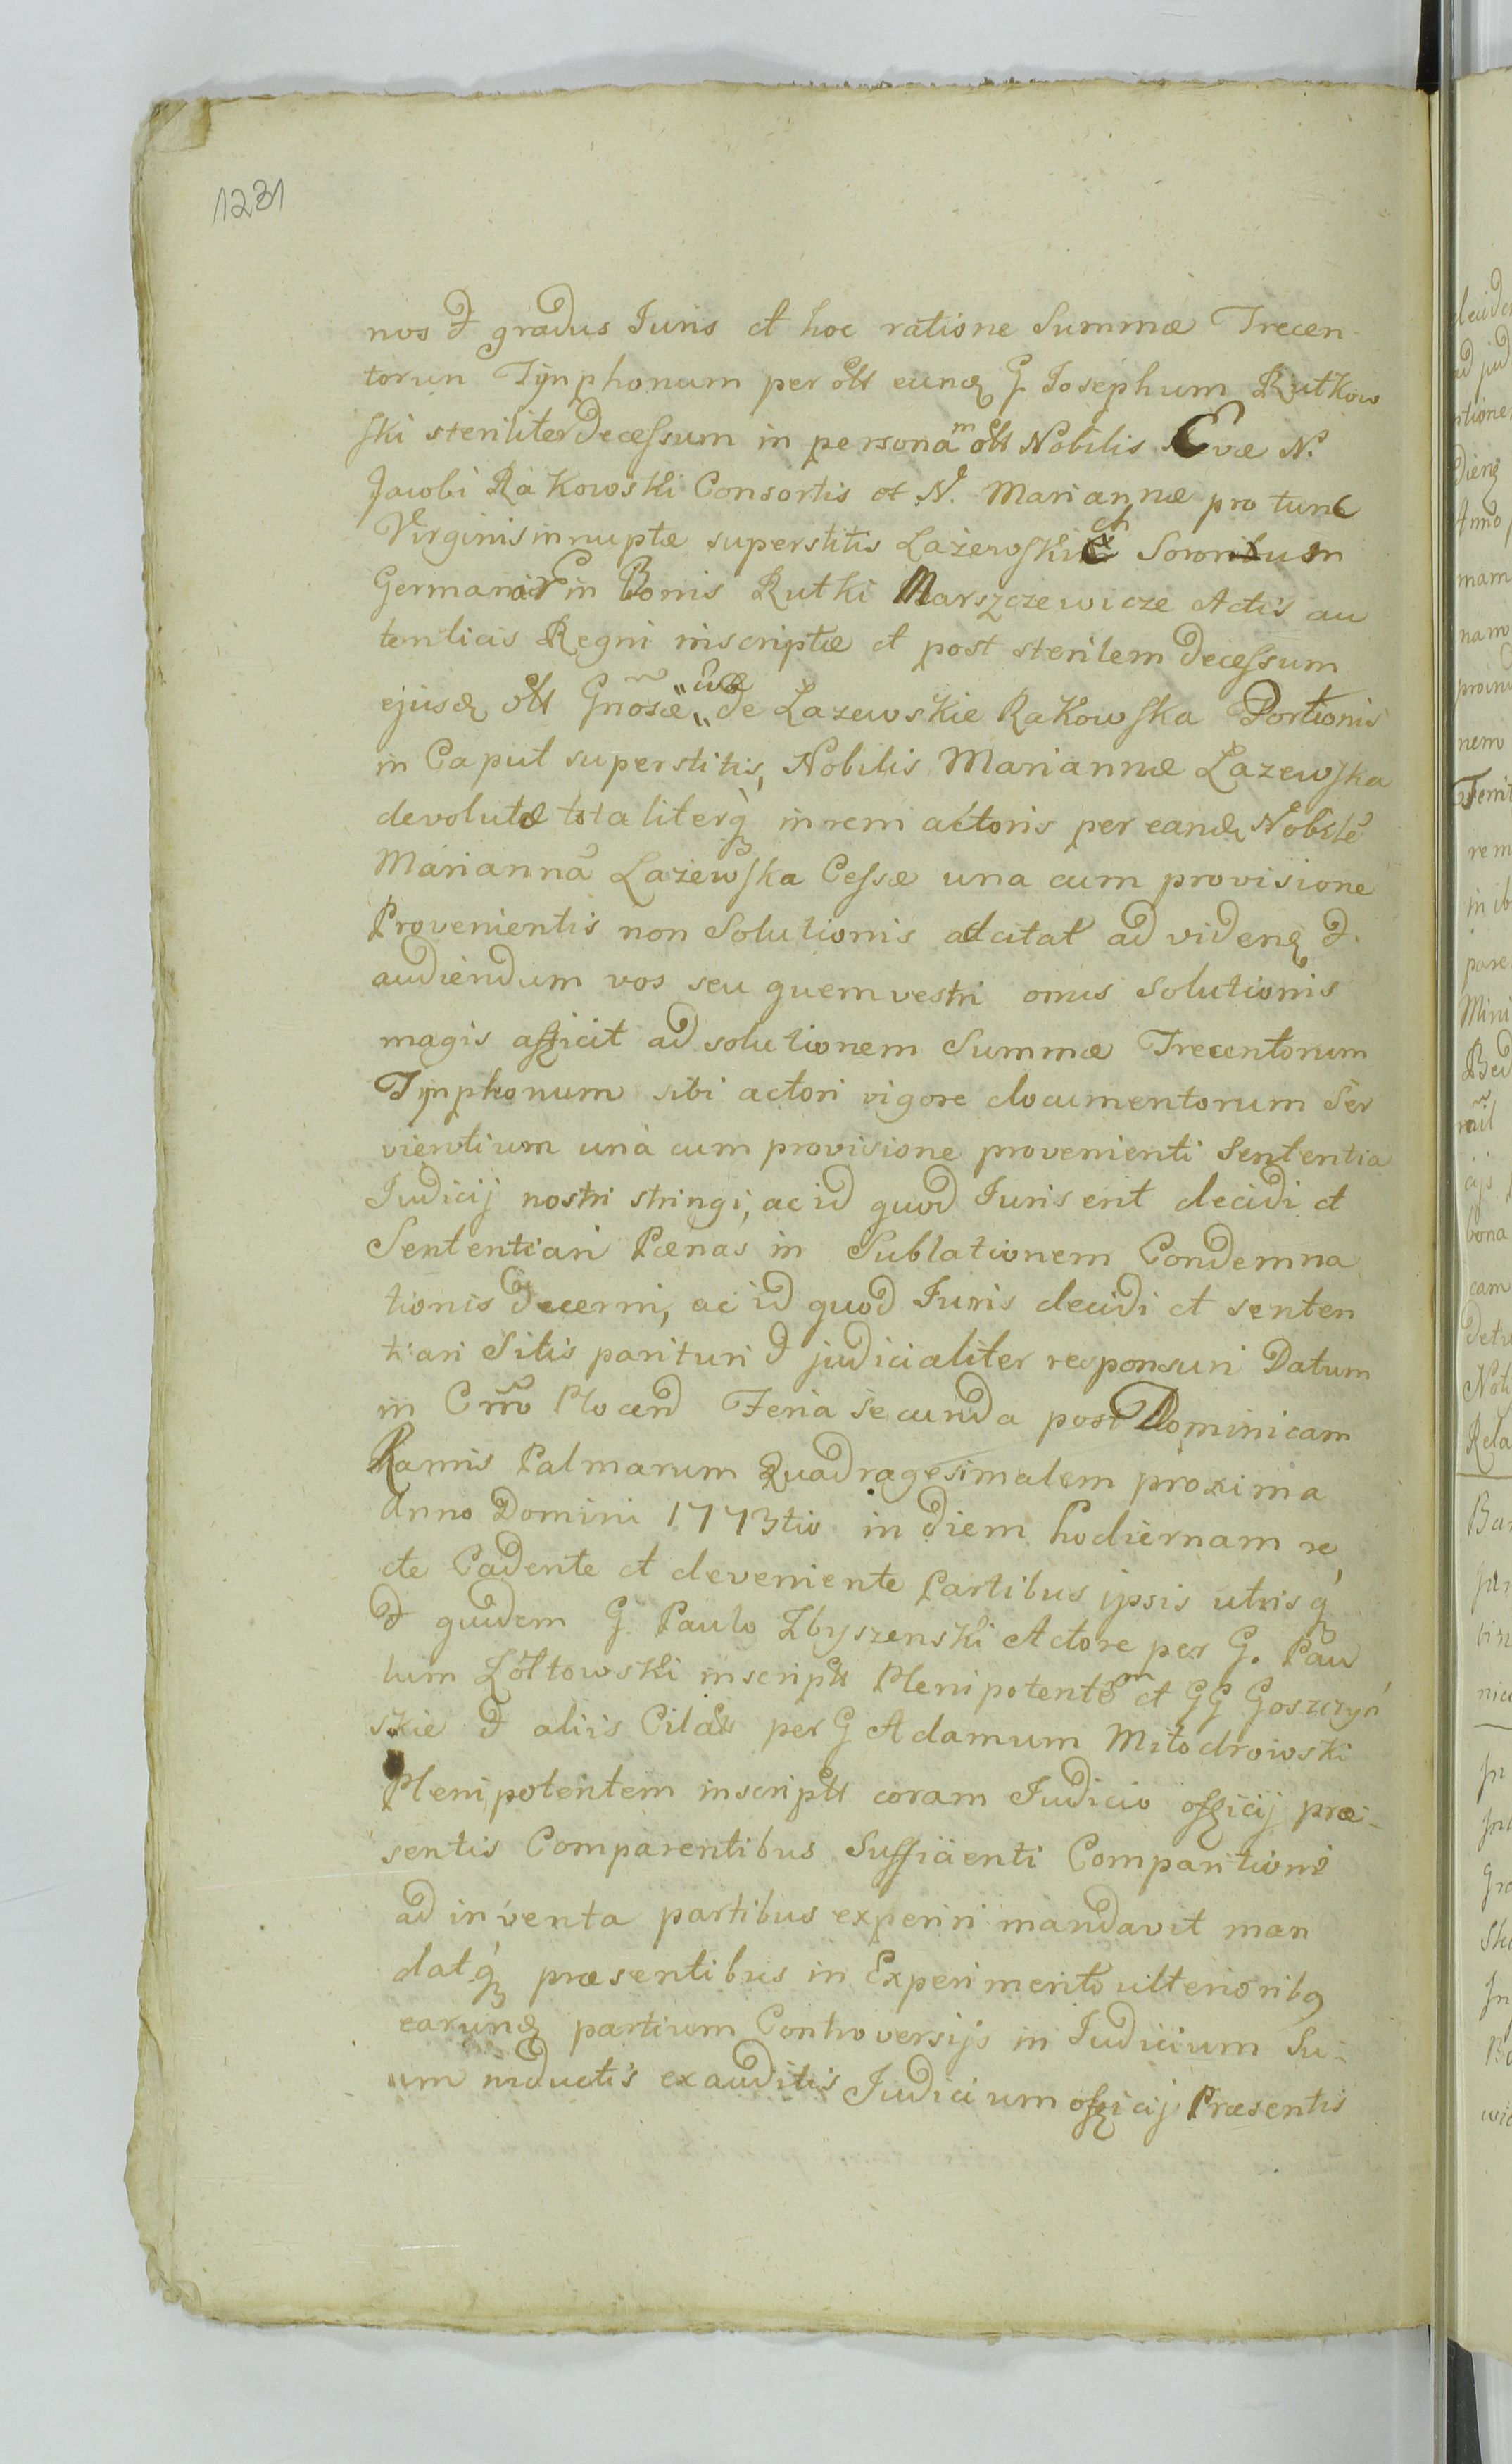 1231
nos & gradus Juris et hoc ratione Summæ Trecen
torun Tynphonum per olt eundẽ G. Josephum Rutkow
ski steriliter Decessum in personam olt Nobilis Evæ N.
Jacobi Rakowski Consortis et N. Mariannæ pro tunc
Virginis innuptæ superstitis Lażewskich Sororum
Germanar in Bonis Rutki Marszczewicze Actis au
tenticis Regni inscriptæ et post sterilem Decessum
ejusdẽ olt Gñosæ Evæ de Lazewskie Rakowska Portionis
in Caput superstitis, Nobilis Mariannæ Lazewska
devolutæ totaliterq̀ in rem actoris per eandẽ Nobilẽ
Mariannã Lażewska Cessæ una cum provisione
Provenientis non Solutionis adcitat ad videnđ &
audiendum vos seu quem vestri onus Solutionis
magis afficit ad solutionem Summæ Trecentorum
Tynphonum sibi actori vigore documentorum Ser
vientium unà cum provisione provenienti Sententia
Judicij nostri stringi, ac id quod Juris erit decidi et
Sententiari Pænas in Sublationem Condemna
tionis Decerni, ac id quod Juris decidi et senten
tiari Sitis parituri & judicialiter responsuri Datum
in Crño Plocen̄ Feria Secunda post Dominicam
Ramis Palmarum Quadragesimalem proxima
Anno Domini 1773tio in Diem hodiernam re
cte Cadente et deveniente Partibus ipsis utrisq̀
& quidem G. Paulo Zbyszenski Actore per G. Pau
lum Zółtowski inscriptt Plenipotentem et GG Goszczyń
skie & aliis Citatt per G Adamum Młodrowski
Plenipotentem inscriptt coram Judicio officij præ-
sentis Comparentibus Sufficienti Comparitione
ad inventa partibus experiri mandavit man
datq̀ præsentibus in Experimento ulteriorib9
earundẽ partium Controversijs in Judicium Su-
um inductis exauditis Judicium officij Præsentis